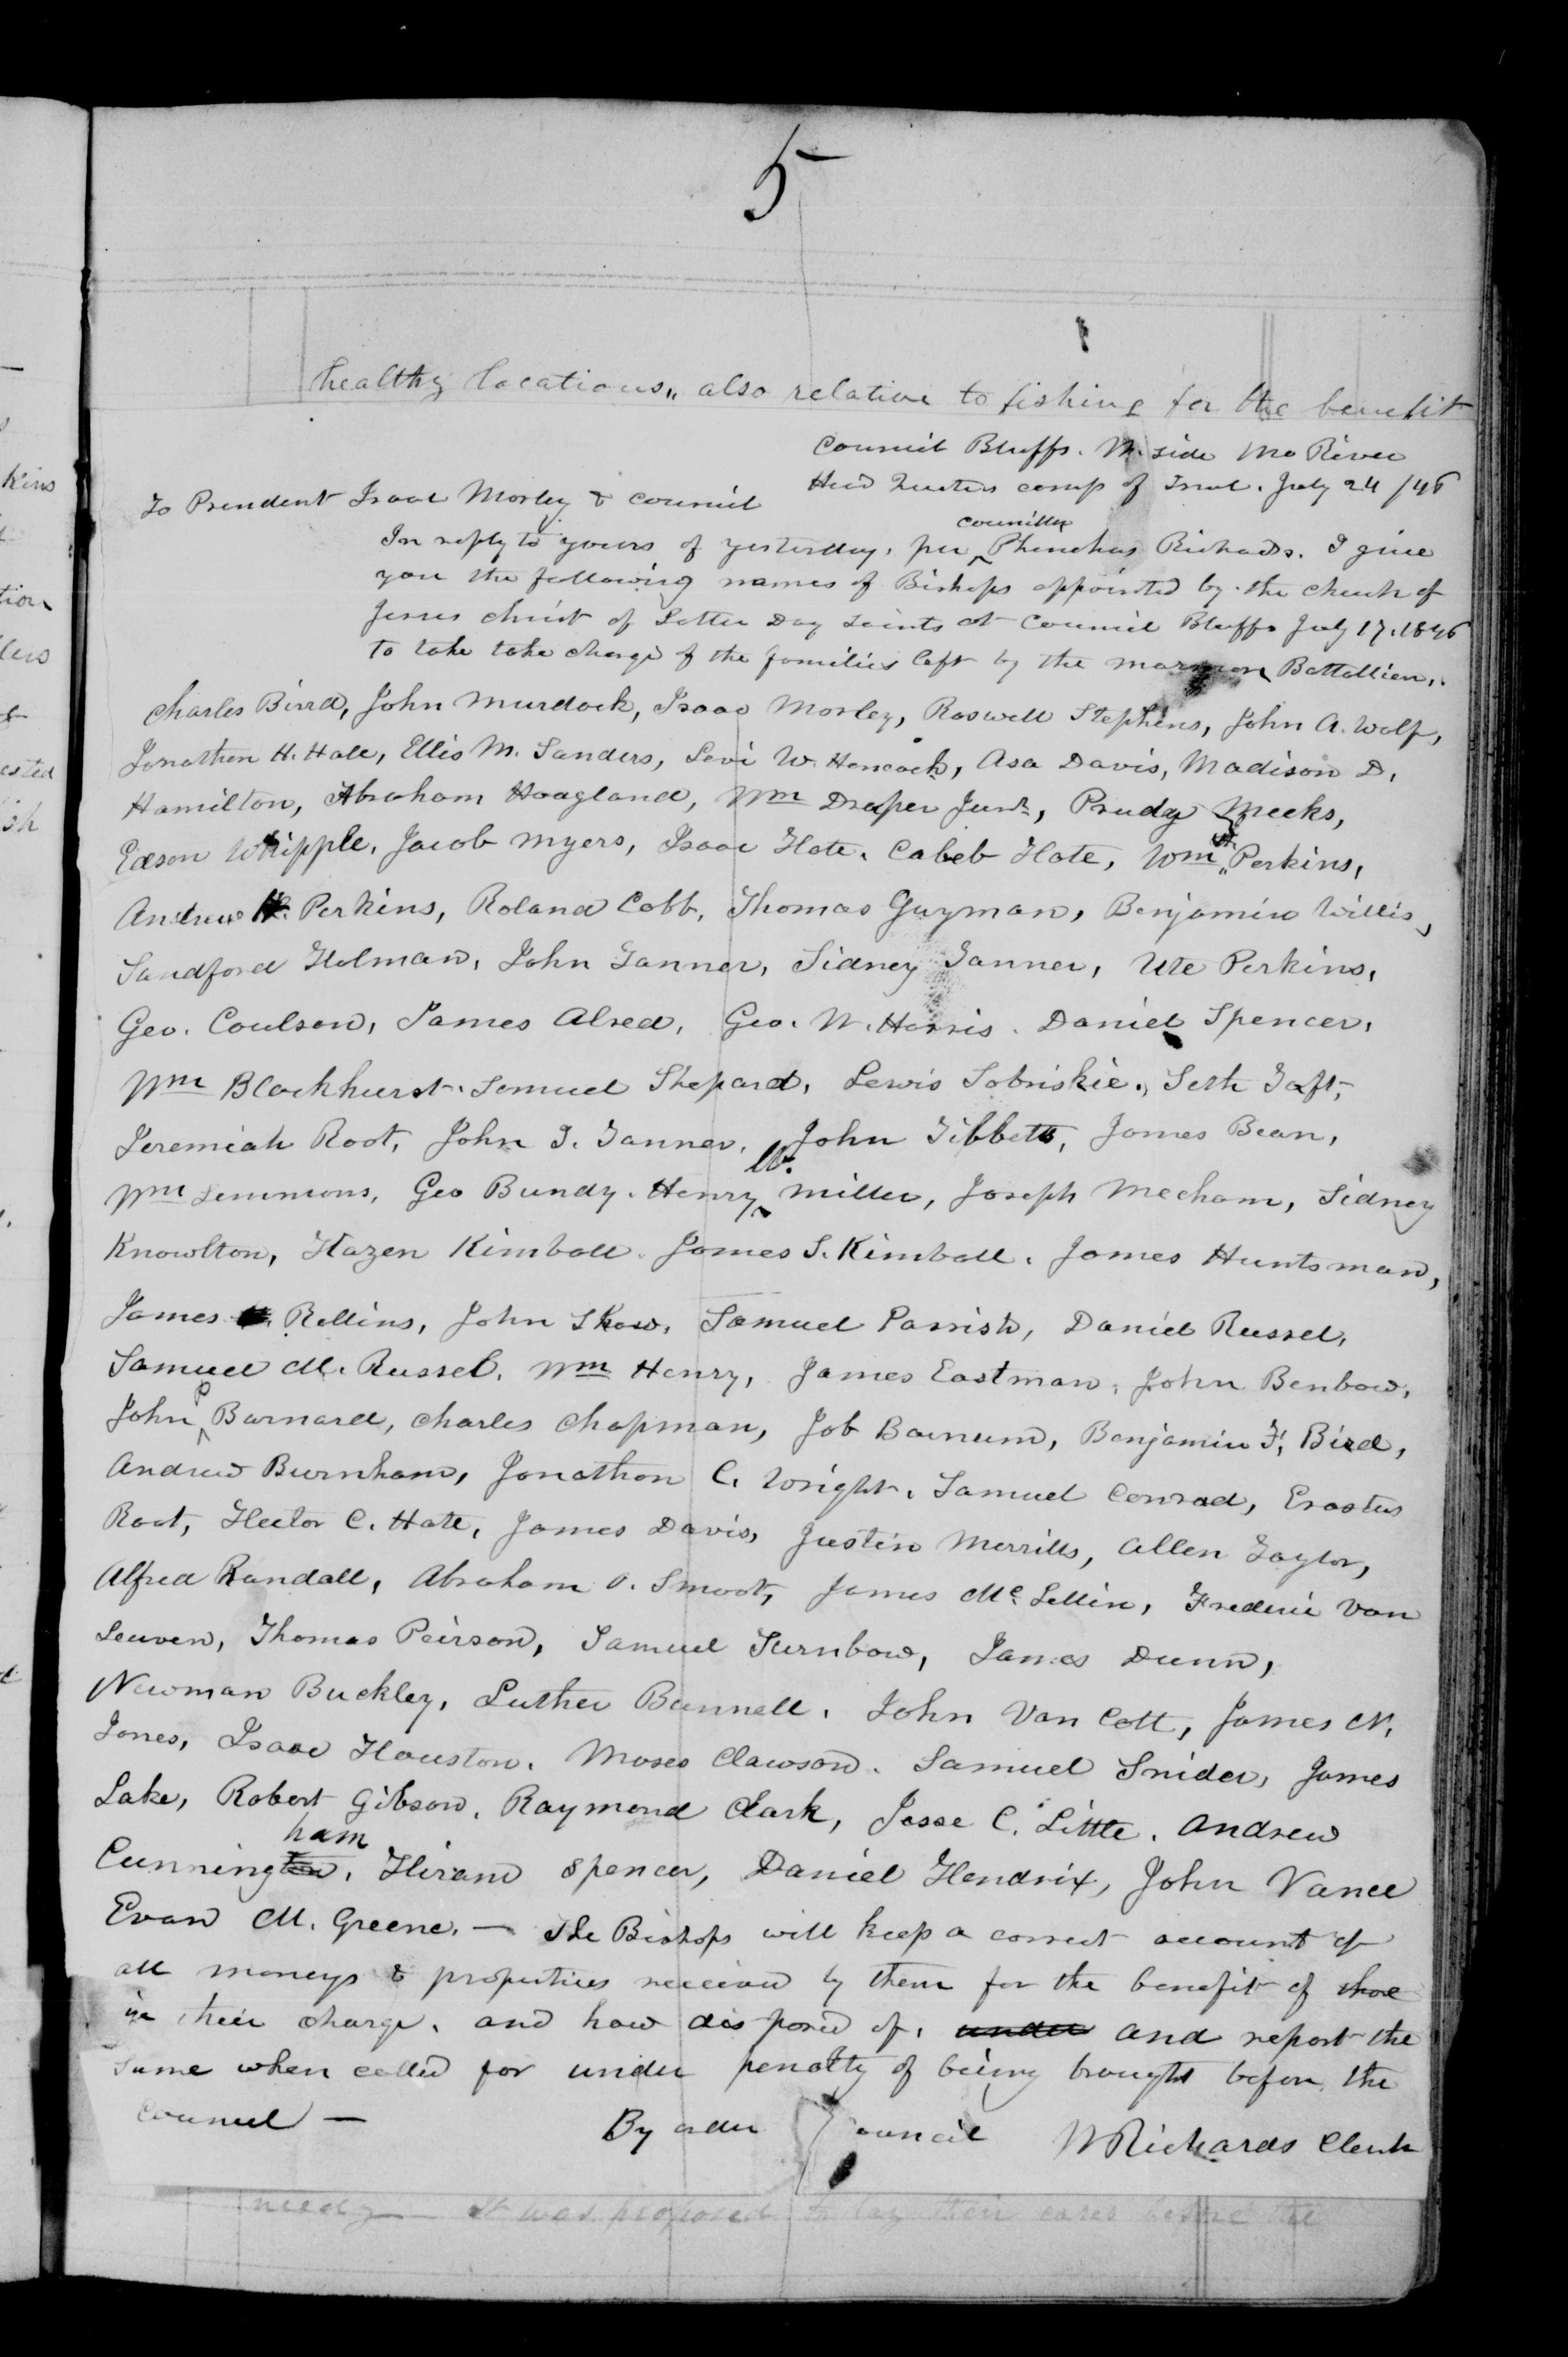 5
healthy locations,, also relative to fishing for the benefit
Council Bluffs. W. side Mo River
Head Quarters camp of Israel. July 24 /46
To President Isaac Morley & council
In reply to yours of yesterday, per councillor Phinehas Richards. I give
you the following names of Bishops appointed by the church of
Jesus christ of Latter Day Saints at Council Bluffs July 17, 1846
to take take charge of the families left by the mormon Battallion,.
Charles Birrd, John Murdock, Isaac Morley, Roswell Stephens, John A. Wolf,
Jonathan H. Hale, Ellis M. Sanders, Levi W. Hancock, Asa Davis, Madison D.
Hamilton, Abraham Hoagland, Wm Draper Junr, Prudy Meeks,
Edson Whipple, Jacob Myers, Isaac Hate. Cabeb Hate, Wm G. Perkins,
Andrew H. Perkins, Roland Cobb, Thomas Guyman, Benjamin Willis,
Sandford Holman, John Tanner, Sidney Tanner, Ute Perkins,
Geo. Coulson, James Alred, Geo. W. Harris. Daniel Spencer,
Wm Blackhurst. Samuel Shepard, Lewis Sobriskie., Seth Taft,
Jeremiah Root, John J. Tanner, John Tibbetts, James Bean,
Wm Simmons, Geo Bundy. Henry W. Miller, Joseph Mecham, Sidney
Knowlton, Hazen Kimball. James S. Kimball. James Huntsman,
James H. Rollins, John Shaw, Samuel Parrish, Daniel Russel,
Samuel M. Russel. Wm Henry, James Eastman, John Benbow,
John P Barnard, Charles Chapman, Job Barnum, Benjamin F. Bird,
Andrew Burnham, Jonathon C. Wright. Samuel Conrad, Erastus
Root, Hector C. Hate, James Davis, Justin Merrills, Allen Taylor,
Alfred Randall, Abraham O. Smoot, James Mc Lellin, Frederic Van
Leuven, Thomas Peirson, Samuel Turnbow, James Dunn,
Newman Buckley, Luther Bunnell. John Van Cott, James N.
Jones, Isaac Houston. Moses Clawson. Samuel Snider, James
Lake, Robert Gibson. Raymond Clark, Jesse C. Little. Andrew
Cunningtonham. Hiram Spencer, Daniel Hendrix, John Vance
Evan M. Greene. — The Bishops will keep a correct account of
all moneys & properties received by them for the benefit of those
in their charge. and how disposed of, under and report the
same when called for under penalty of being brought before the
council —
By order Council W Richards Clerk
needy — It was proposed to lay their cases before the